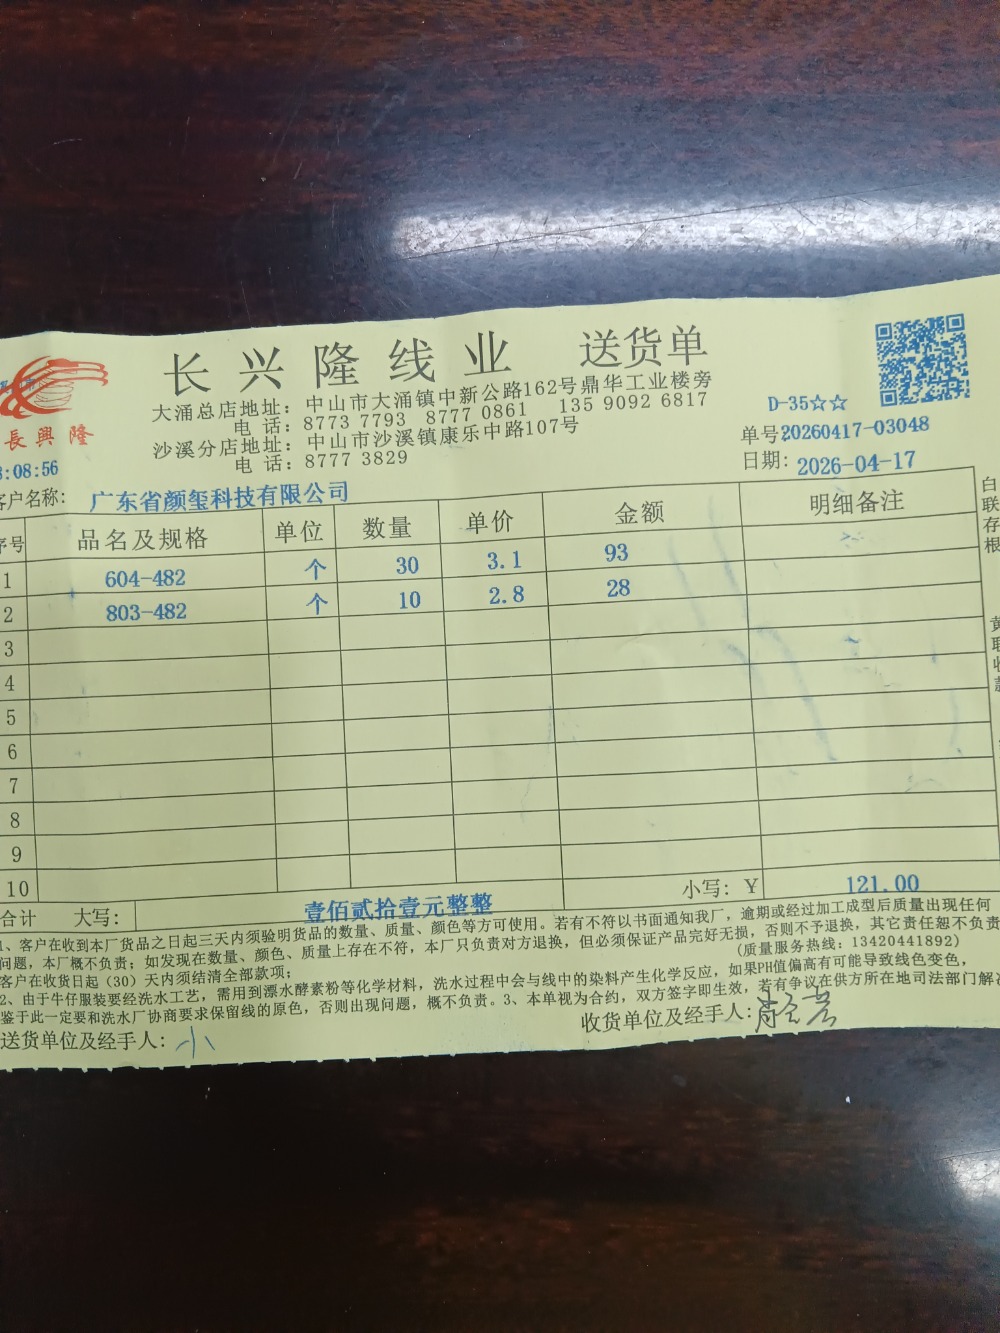 长兴隆线业 送货单
大涌总店地址：中山市大涌镇中新公路162号鼎华工业楼旁
电 话：8773 7793 8777 0861 135 9092 6817
沙溪分店地址：中山市沙溪镇康乐中路107号
电 话：8777 3829
長興隆
D-35☆☆
单号20260417-03048
:08:56
日期：2026-04-17
客户名称：广东省颜玺科技有限公司
序号 品名及规格 单位 数量 单价 金额 明细备注
1 604-482 个 30 3.1 93
2 803-482 个 10 2.8 28
3
4
5
6
7
8
9
10
小写：￥ 121.00
合计 大写： 壹佰贰拾壹元整整
1、客户在收到本厂货品之日起三天内须验明货品的数量、质量、颜色等方可使用。若有不符以书面通知我厂，逾期或经过加工成型后质量出现任何
问题，本厂概不负责；如发现在数量、颜色、质量上存在不符，本厂只负责对方退换，但必须保证产品完好无损，否则不予退换，其它责任恕不负责
客户在收货日起（30）天内须结清全部款项；
（质量服务热线：13420441892）
2、由于牛仔服装要经洗水工艺，需用到漂水酵素粉等化学材料，洗水过程中会与线中的染料产生化学反应，如果PH值偏高有可能导致线色变色，
鉴于此一定要和洗水厂协商要求保留线的原色，否则出现问题，概不负责。3、本单视为合约，双方签字即生效，若有争议在供方所在地司法部门解决
送货单位及经手人：小
收货单位及经手人：
白联存根
黄联收款